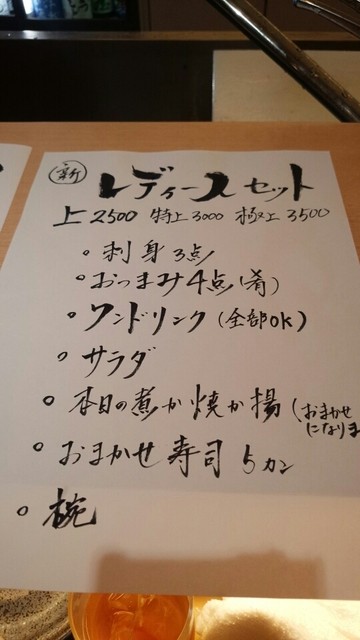 新 レディースセット
上 2500 特上 3000 極上 3500
。刺身 3点
。おつまみ 4点(肴)
。ワンドリンク(全部OK)
。サラダ
。本日の煮か焼か揚(おまかせ
になりま
。おまかせ寿司 5カン
。椀